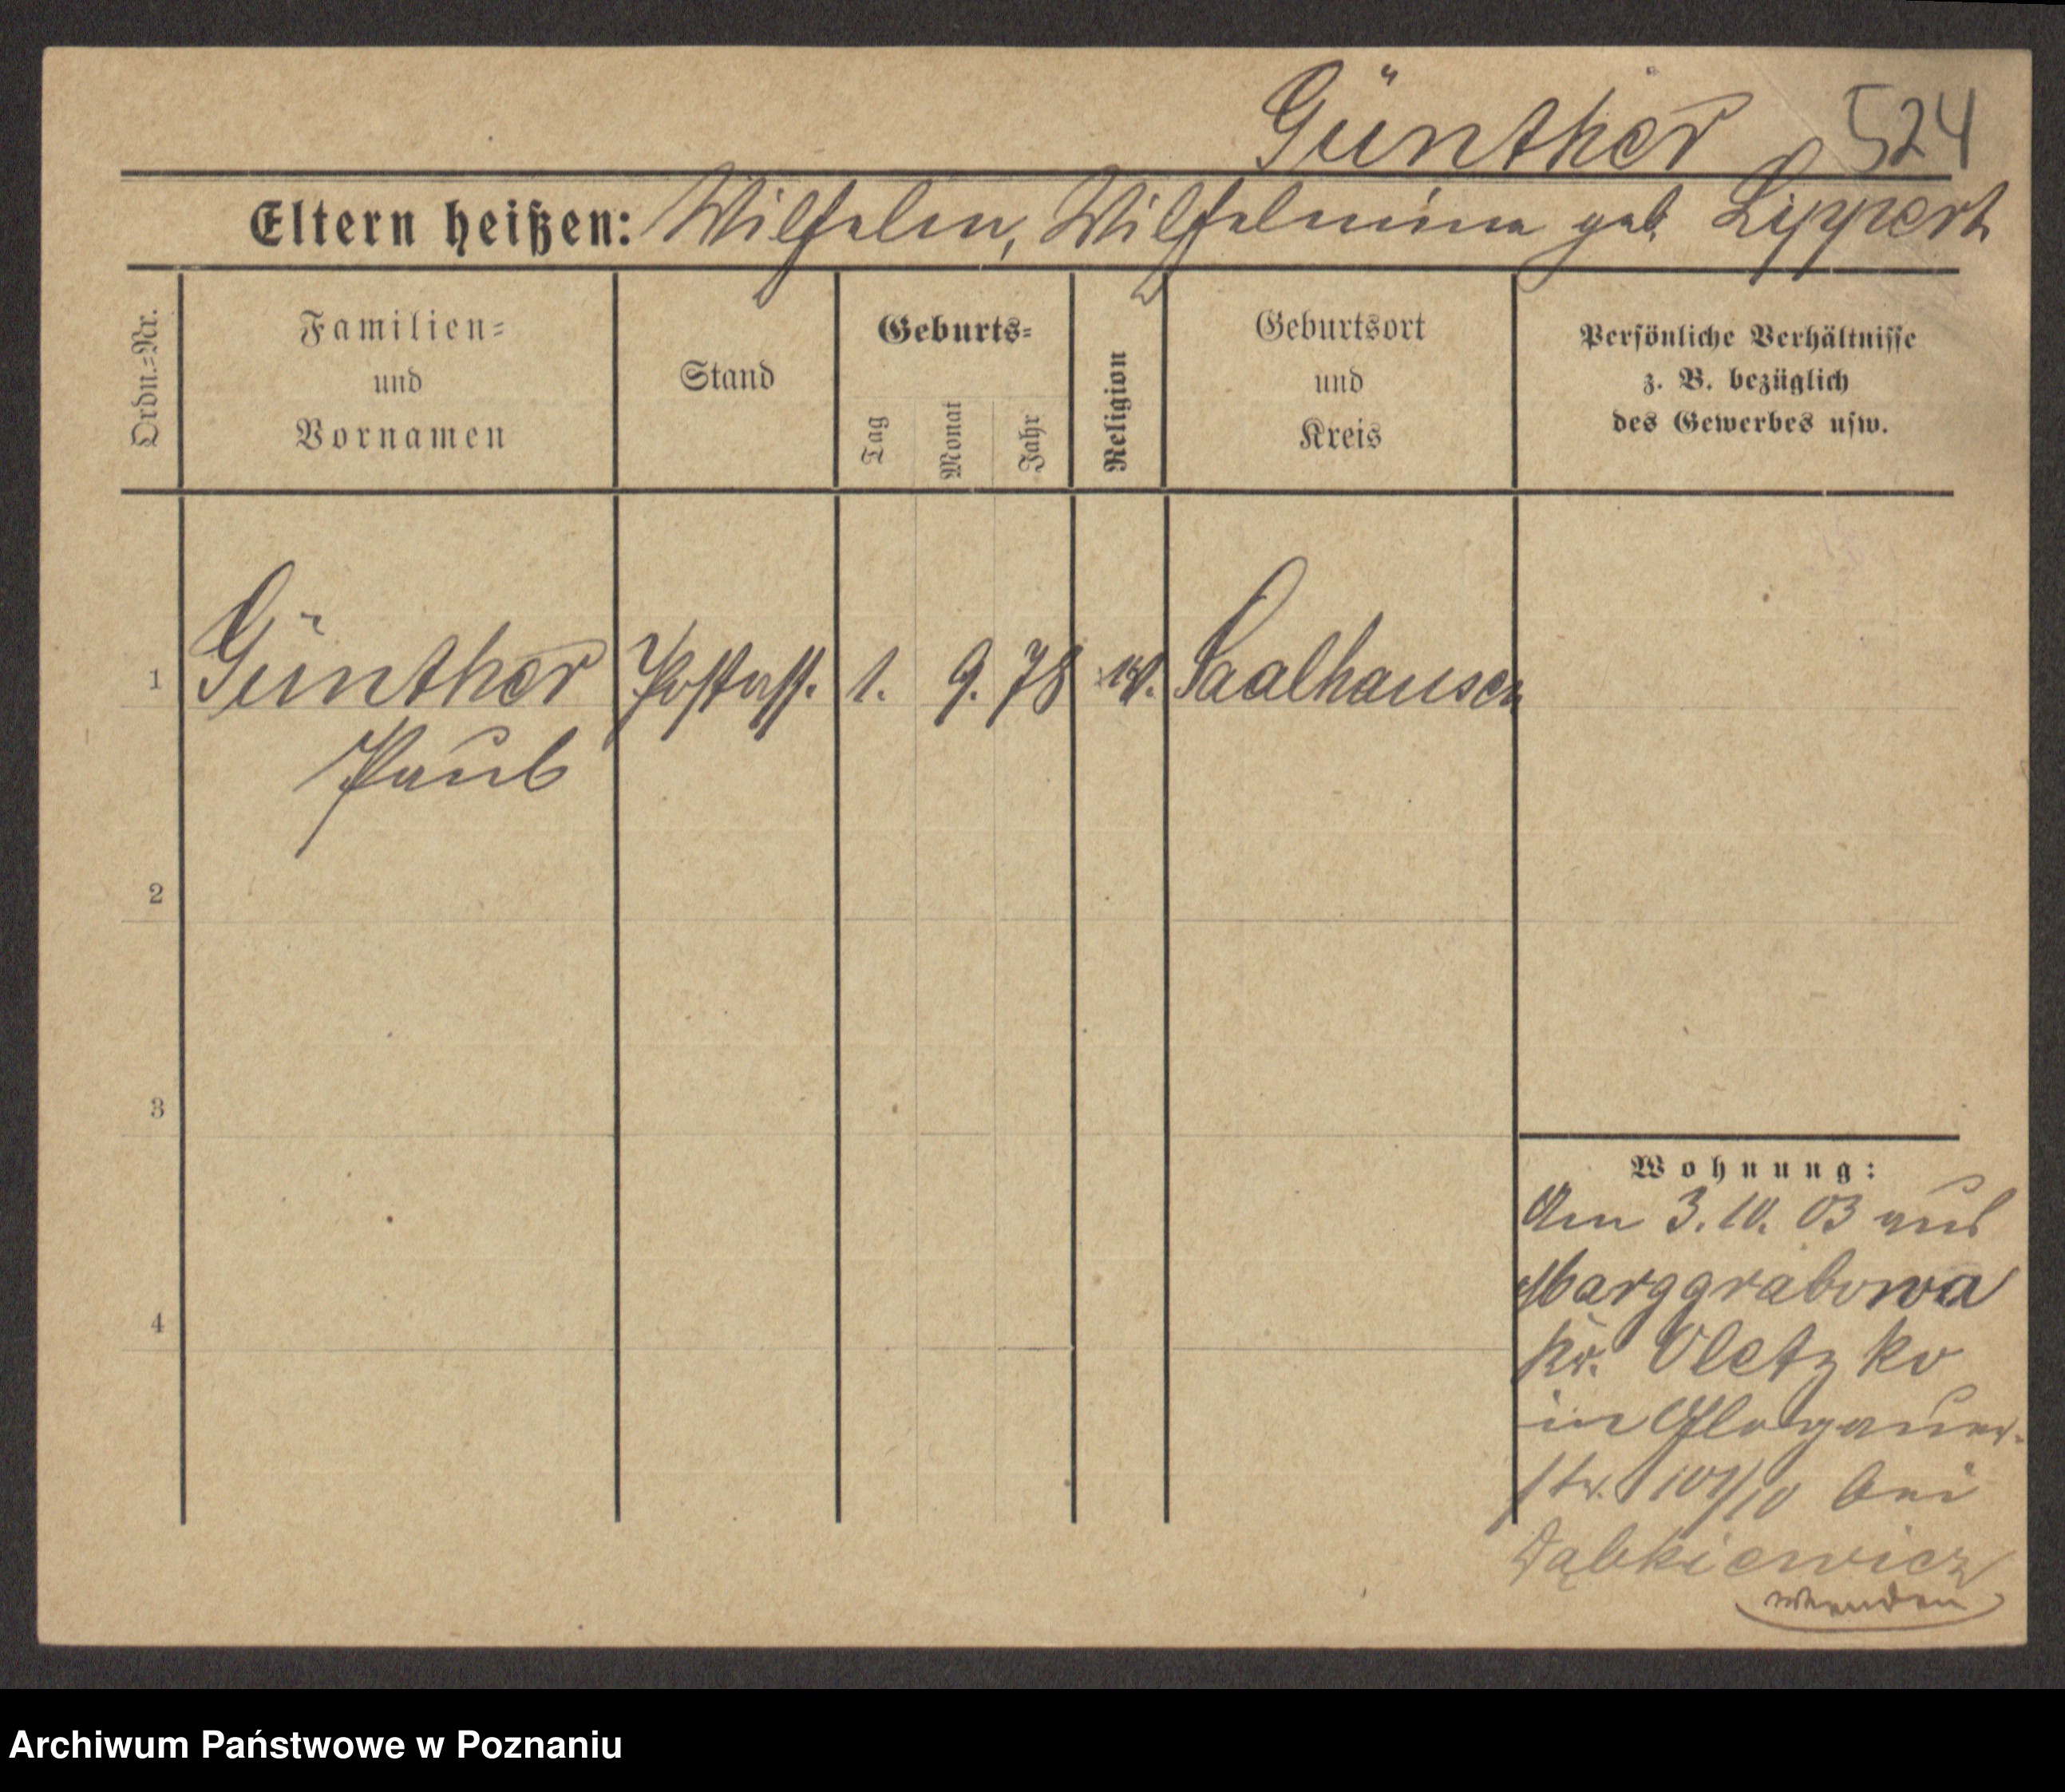 Günther 524
Eltern heißen: Wilhelm, Wilhelmine geb. Lippert
Ordn.=Nr.
Familien=
und
Vornamen
Stand
Geburts=
Tag
Monat
Jahr
Religion
Geburtsort
und
Kreis
Persönliche Verhältnisse
z. B. bezüglich
des Gewerbes usw.
1 Günther Postass. 1. 9. 78 Saalhausen
Paul
2
3
4
Wohnung:
Am 3.10.03 aus
Marggrabowa
Kr. Oletzko
in Glogauer-
str. bei
Dąbkiewicz
wenden
Archiwum Państwowe w Poznaniu